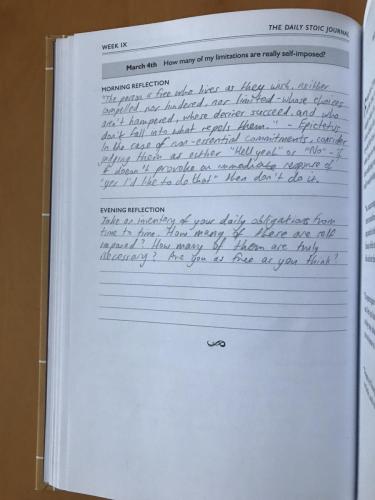 WEEK IX
THE DAILY STOIC JOURNAL
March 4th How many of my limitations are really self-imposed?
MORNING REFLECTION
"The person is free who lives as they wish, neither
compelled nor hindered, nor limited - whose choices
aren't hampered, whose desires succeed, and who
don't fall into what repels them." - Epictetus
In the case of non-essential commitments, consider
judging them as either "Hell yeah" or "No" - if
it doesn't provoke an immediate response of
"yes I'd like to do that" then don't do it.
EVENING REFLECTION
Take an inventory of your daily obligations from
time to time. How many of these are self
imposed? How many of them are truly
necessary? Are you as free as you think?